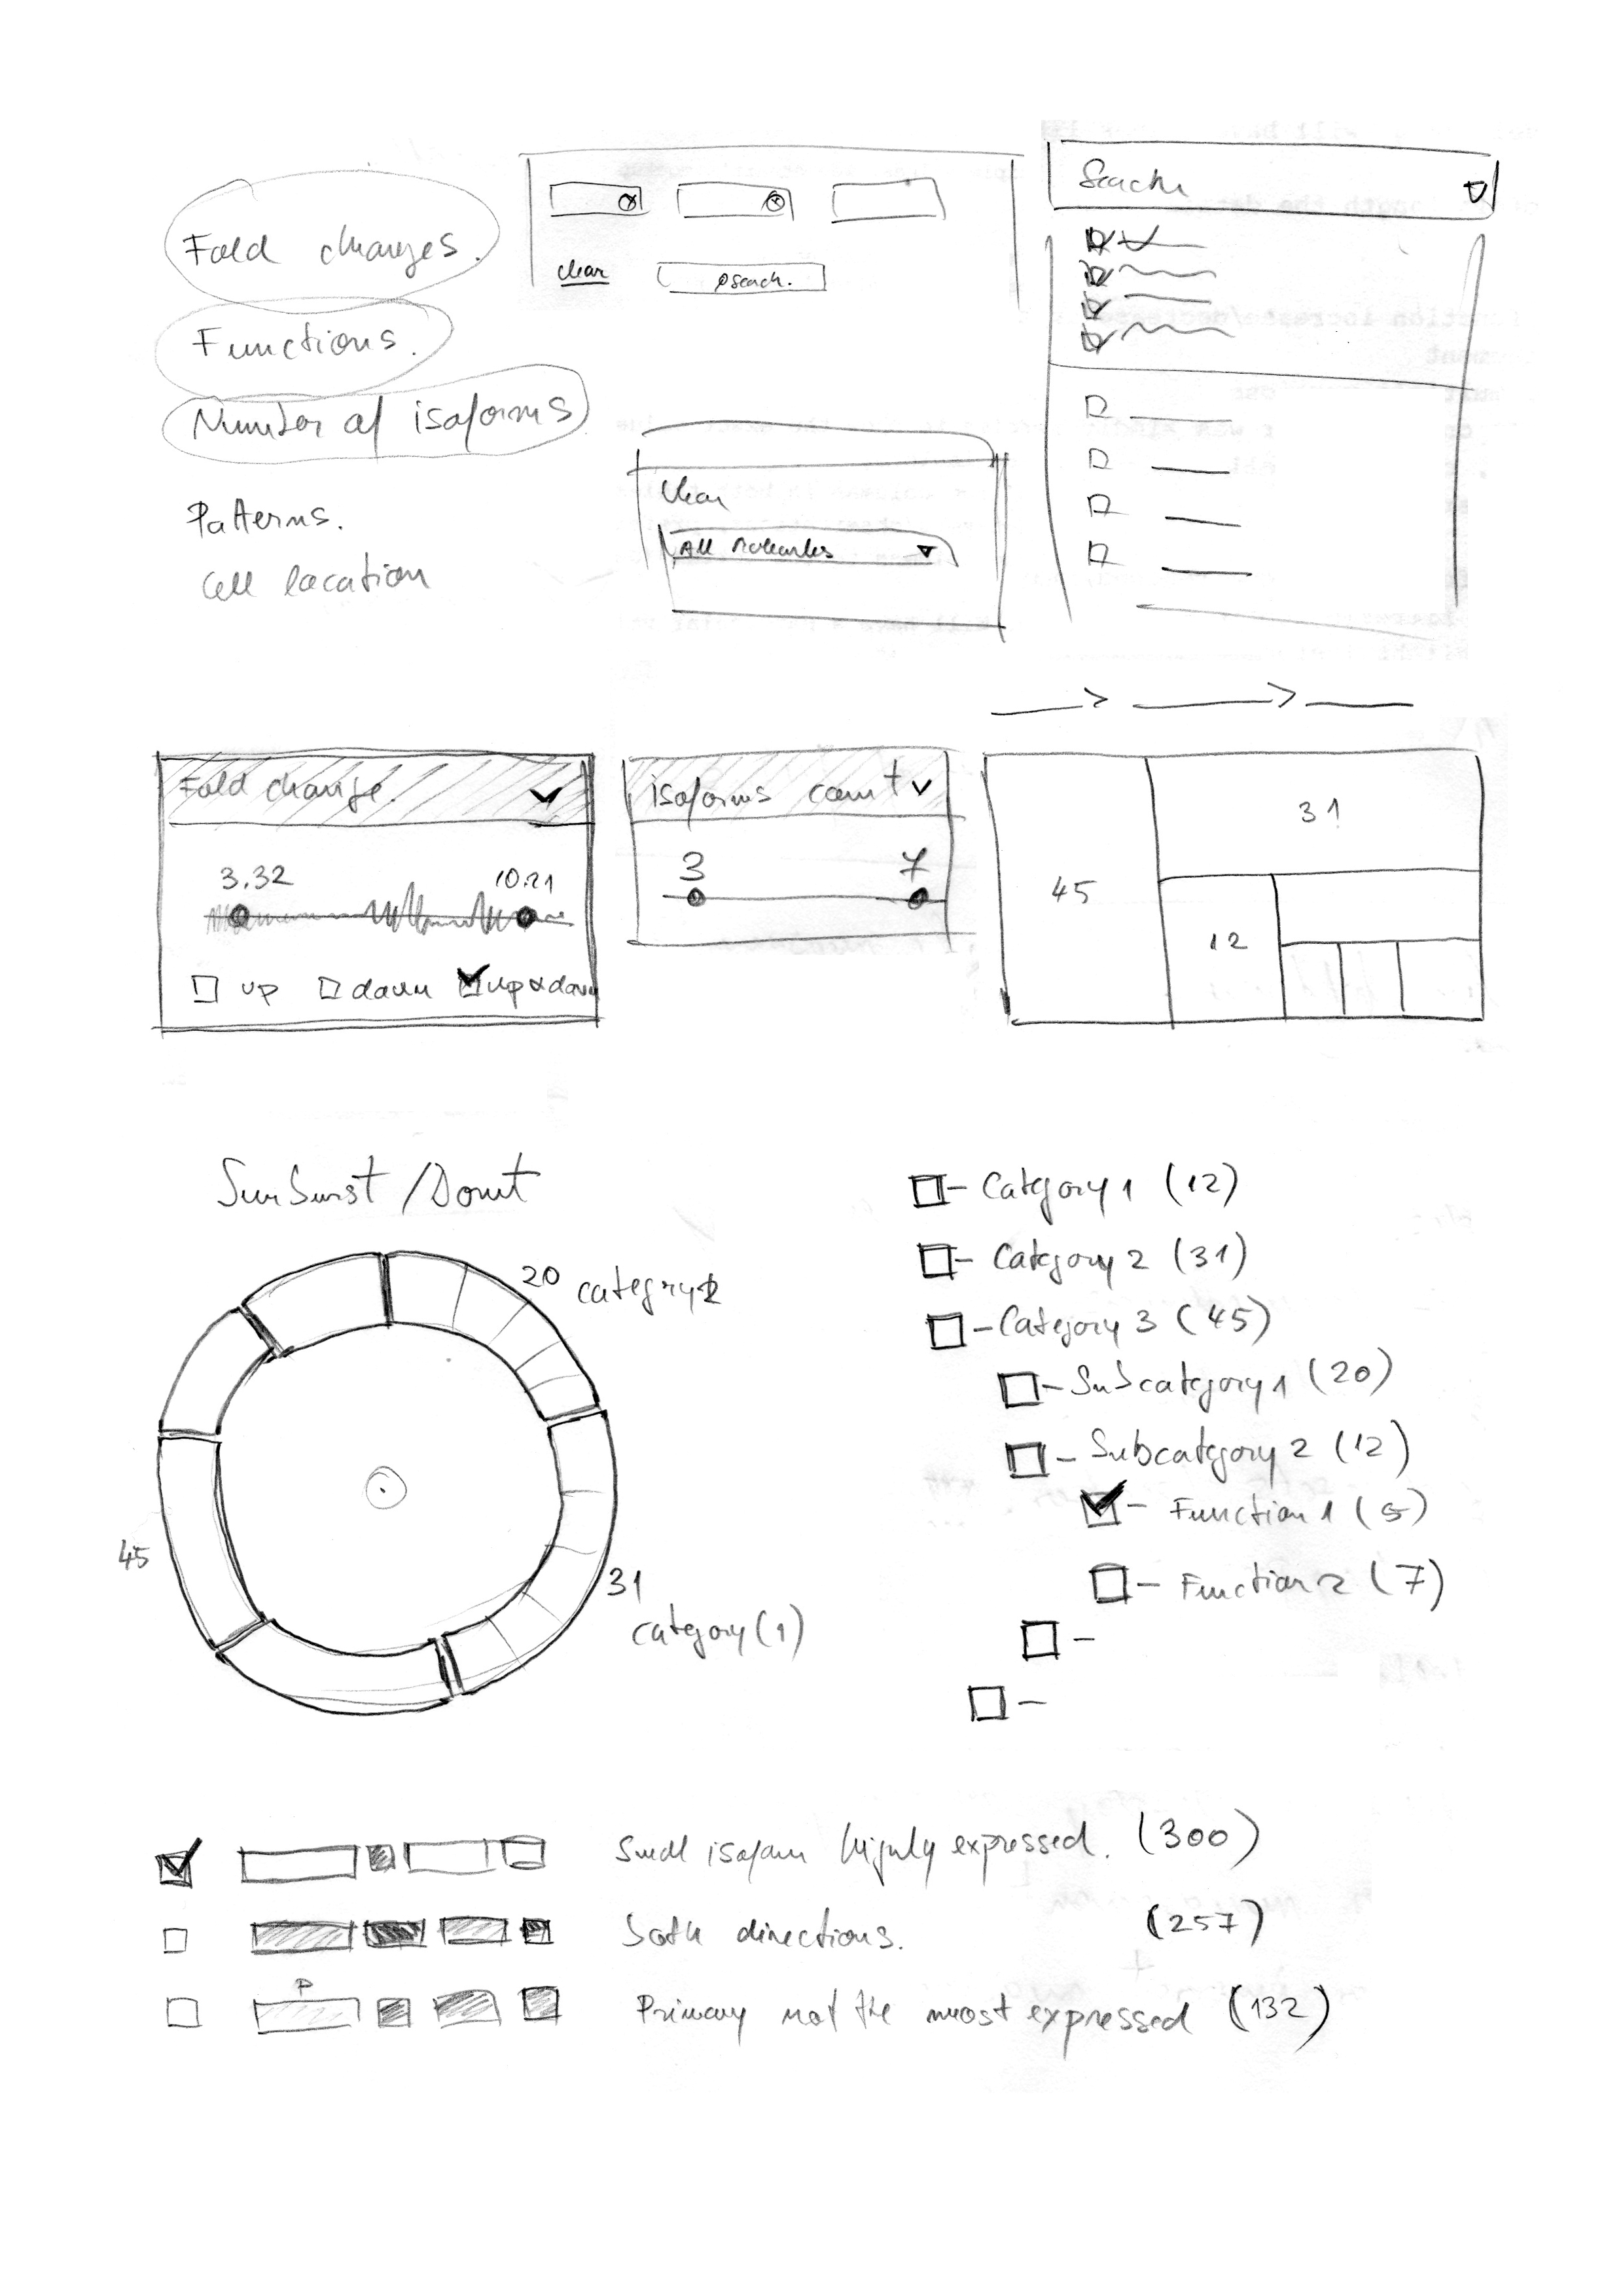 Fold changes.
Functions.
Number of isoforms
Patterns.
Cell location
clear
search.
Search
Clear
All
Fold change.
3.32
10.21
up
down
up & down
isoforms count
3
7
45
31
12
Sunburst / Donut
20 category 2
45
31
category (1)
Category 1 (12)
Category 2 (31)
Category 3 (45)
Subcategory 1 (20)
Subcategory 2 (12)
Function 1 (5)
Function 2 (7)
Small isoform highly expressed. (300)
both directions. (257)
P
Primary not the most expressed (132)